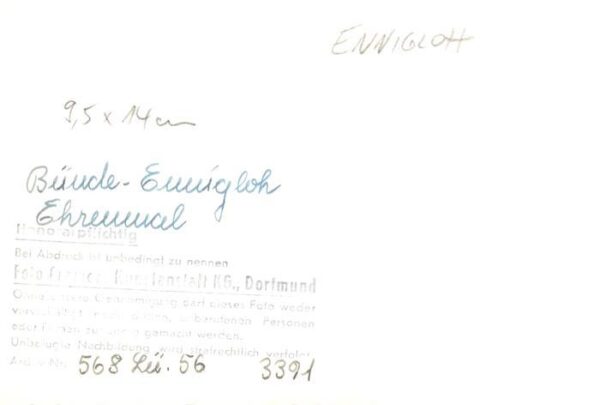 ENNIGLOH
9,5 x 14 cm
Bünde-Ennigloh
Ehrenmal
Honorarpflichtig
Bei Abdruck ist unbedingt zu nennen
Foto Kunstanstalt KG., Dortmund
Ohne unsere Genehmigung darf dieses Foto weder
vervielfältigt noch dritten, unberufenen Personen
oder Firmen zugängig gemacht werden.
Unbefugte Nachbildung wird strafrechtlich verfolgt.
Archiv-Nr. 568 Lü. 56 3391